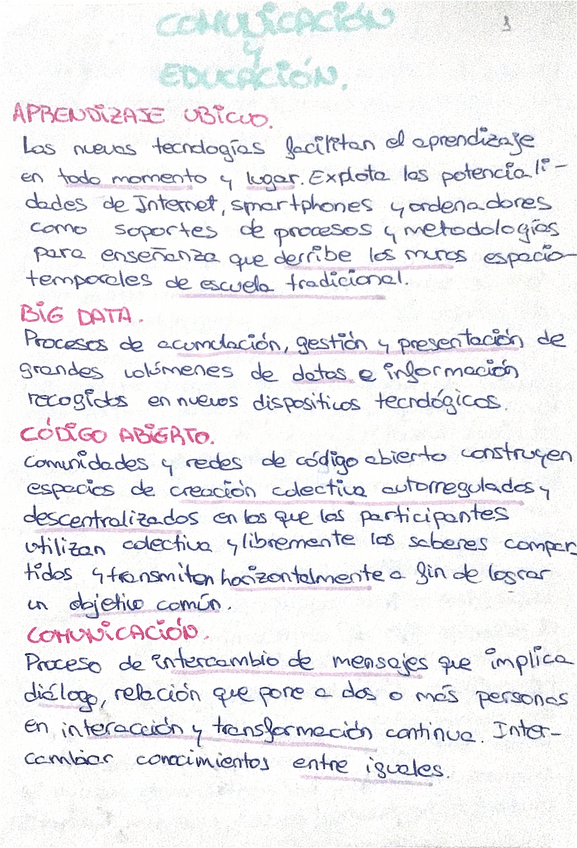 COMUNICACIÓN
1
y
EDUCACIÓN.
APRENDIZAJE UBICUO.
Las nuevas tecnologías facilitan el aprendizaje
en todo momento y lugar. Explota las potenciali-
dades de Internet, smartphones y ordenadores
como soportes de procesos y metodologías
para enseñanza que derribe los muros espacio
temporales de escuela tradicional.
BIG DATA.
Procesos de acumulación, gestión y presentación de
grandes volúmenes de datos e información
recogidos en nuevos dispositivos tecnológicos.
CÓDIGO ABIERTO.
Comunidades y redes de código abierto construyen
espacios de creación colectiva autorregulados y
descentralizados en los que los participantes
utilizan colectiva y libremente los saberes compar
tidos y transmiten horizontalmente a fin de lograr
un objetivo común.
COMUNICACIÓN.
Proceso de intercambio de mensajes que implica
diálogo, relación que pone a dos o más personas
en interacción y transformación continua. Inter-
cambiar conocimientos entre iguales.